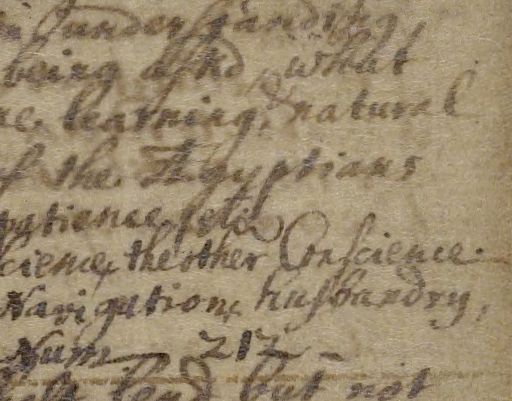 understanding
being askd what
learning, & natural
the Ægyptians
patience, set
science, the other Conscience.
Navigation, husbandry,
Num — 212 –
lead but not